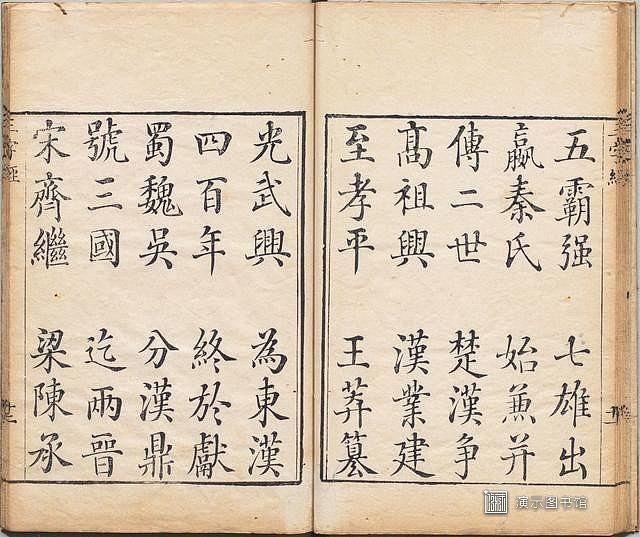 五霸强 七雄出
嬴秦氏 始兼并
傳二世 楚漢爭
高祖興 漢業建
至孝平 王莽篡
光武興 為東漢
四百年 終於獻
蜀魏吳 分漢鼎
號三國 迄兩晉
宋齊繼 梁陳承
三字經
演示图书馆